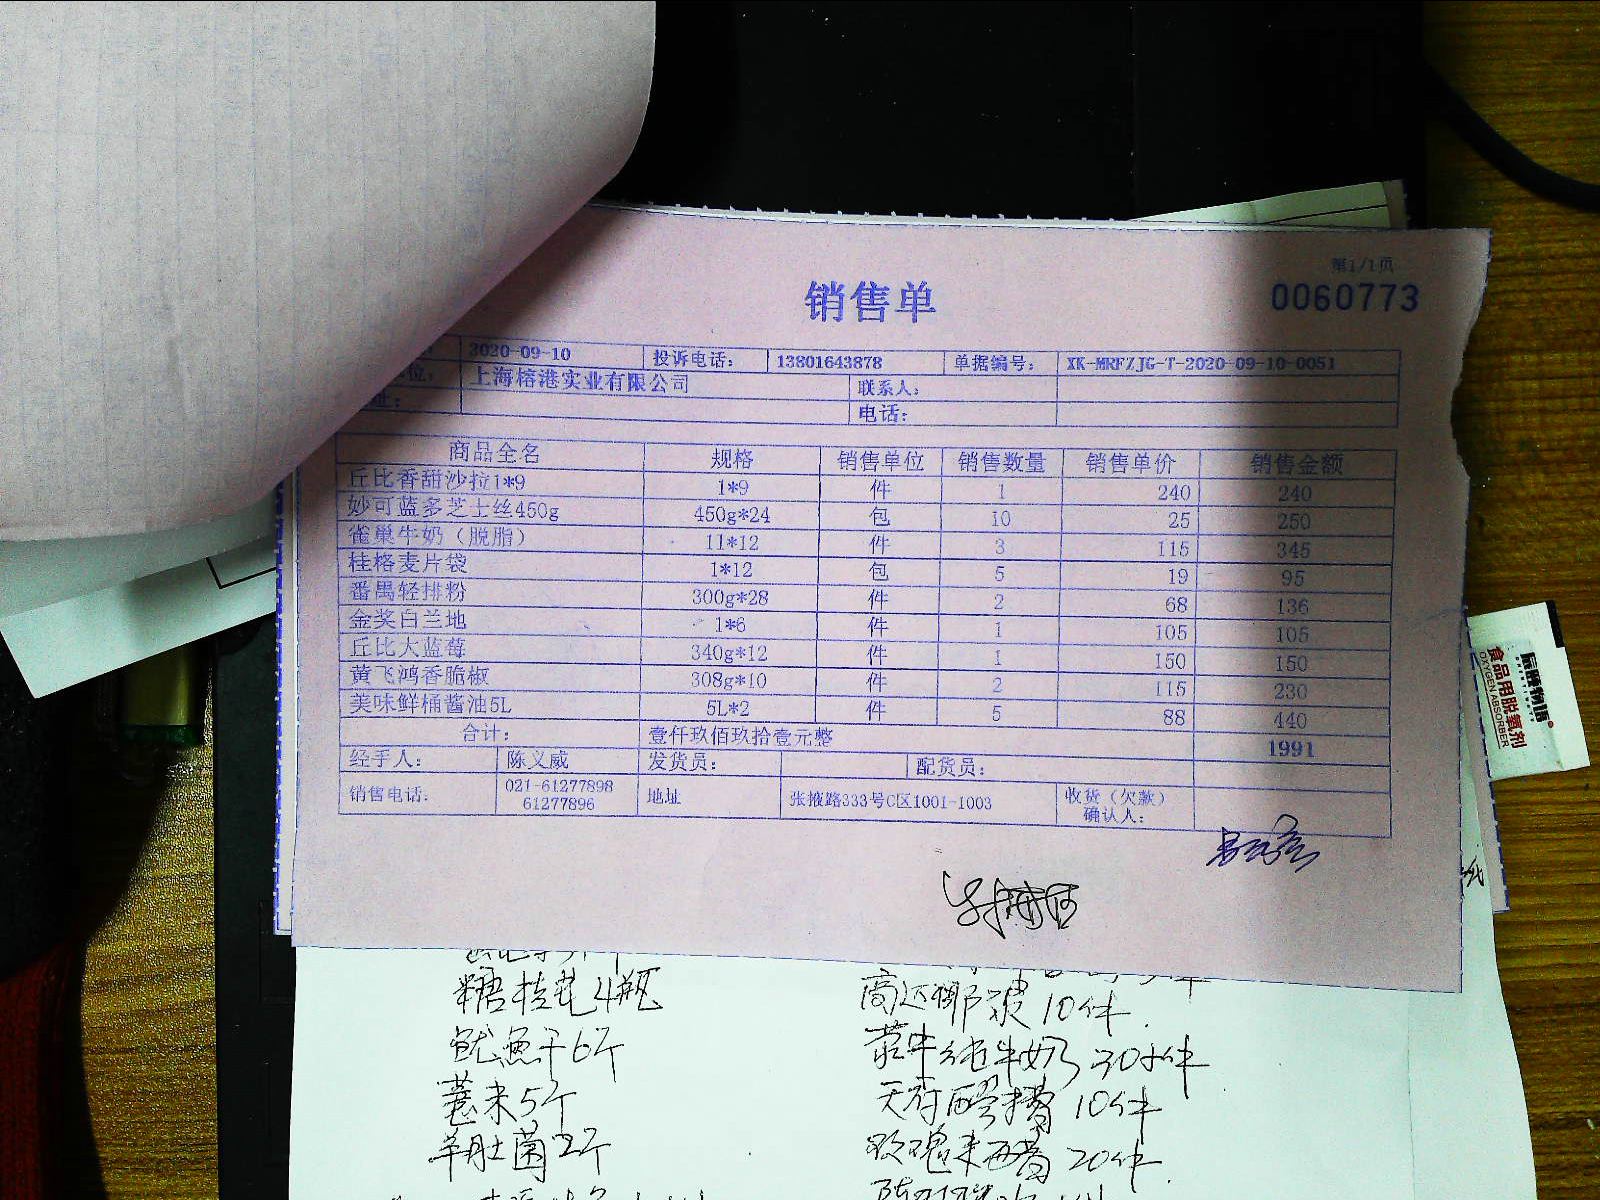 第1/1页
销售单
0060773
2020-09-10 投诉电话： 13801643878 单据编号： XK-MRFZJG-T-2020-09-10-0051
位： 上海榕港实业有限公司 联系人：
址： 电话：
商品全名 规格 销售单位 销售数量 销售单价 销售金额
丘比香甜沙拉1*9 1*9 件 1 240 240
妙可蓝多芝士丝450g 450g*24 包 10 25 250
雀巢牛奶（脱脂） 11*12 件 3 115 345
桂格麦片袋 1*12 包 5 19 95
番禺轻排粉 300g*28 件 2 68 136
金奖白兰地 1*6 件 1 105 105
丘比大蓝莓 340g*12 件 1 150 150
黄飞鸿香脆椒 308g*10 件 2 115 230
美味鲜桶酱油5L 5L*2 件 5 88 440
合计： 壹仟玖佰玖拾壹元整 1991
经手人： 陈义威 发货员： 配货员：
销售电话： 021-61277898 61277896 地址 张掖路333号C区1001-1003 收货（欠款）确认人：
食品用脱氧剂
OXYGEN ABSORBER
糖桂花4瓶
鱿鱼干6斤
薏米5斤
羊肚菌2斤
10件
纯牛奶30件
10件
玫瑰 20件